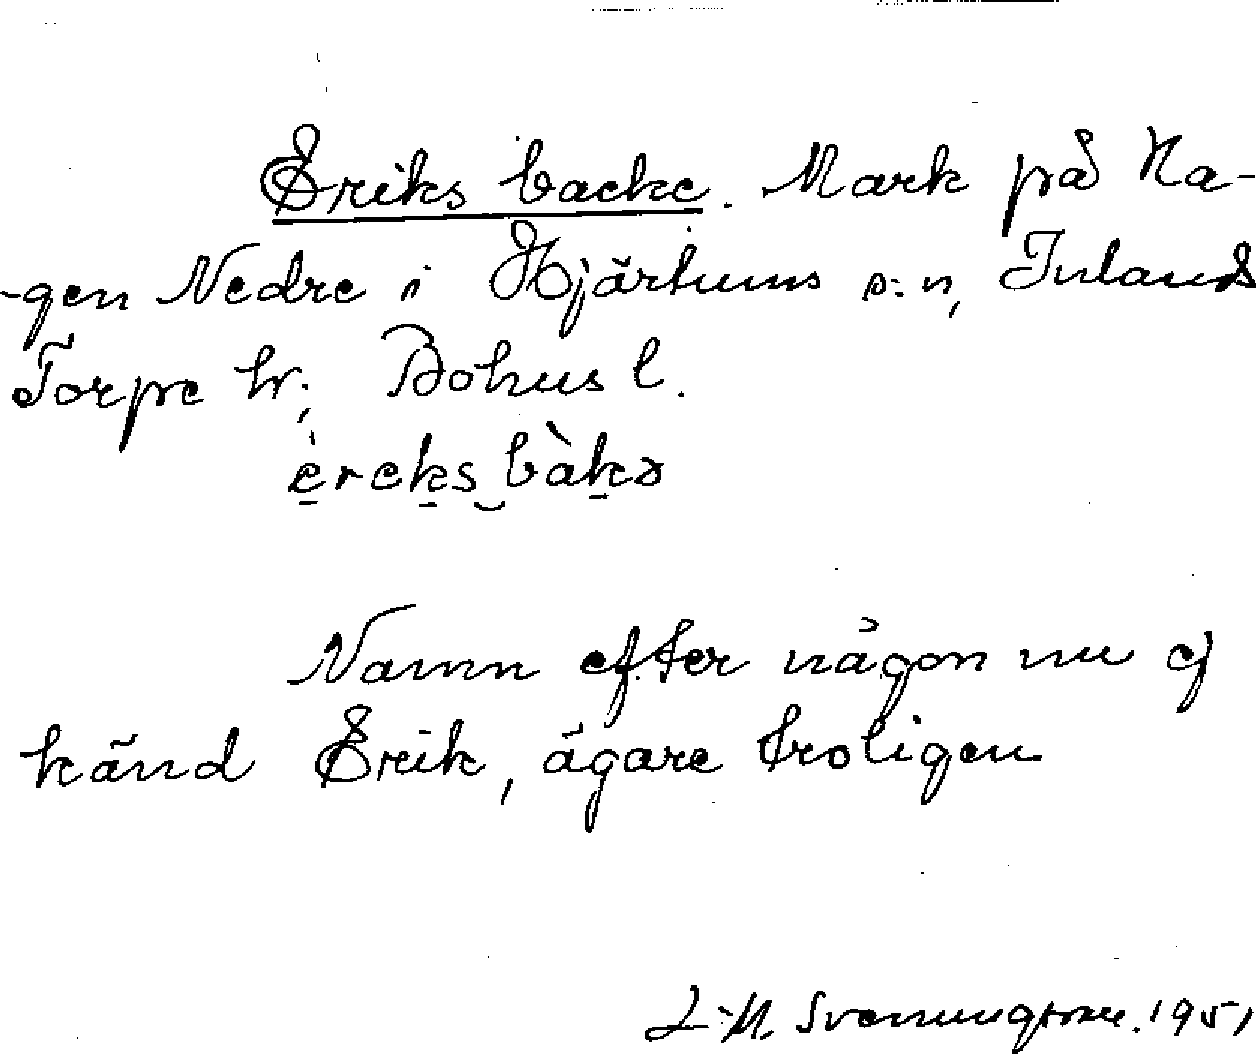 Eriks backe. Mark på Ha-
-gen Nedre i Hjärtums s:n, Inlands
Torpe hr; Bohus l.
èreks bàkə
Namn efter någon nu ej
känd Erik, ägare troligen
L.M. Svenungsson. 1951